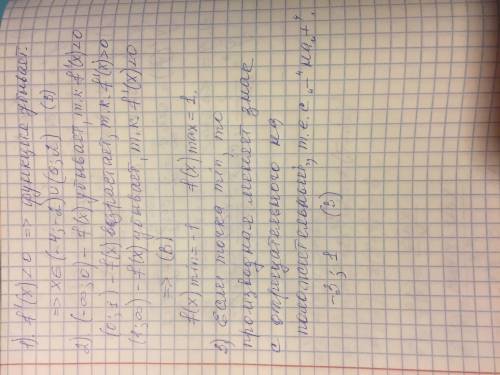 1). f'(x)<0 => функция убывает.
=> x∈(-4; -2)∪(3; 2) (3)
2) (-∞; 0) - f(x) убывает, т.к. f'(x)<0
(0; 1) - f(x) возрастает, т.к. f'(x)>0
(1; ∞) - f(x) убывает, т.к. f'(x)<0
=> (3)
f(x) min = -1 f(x) max = 1.
3) Если точка min, то
производная меняет знак
с отрицательного на
положительный, т.е. с „-" на „+".
-3; 1 (3)